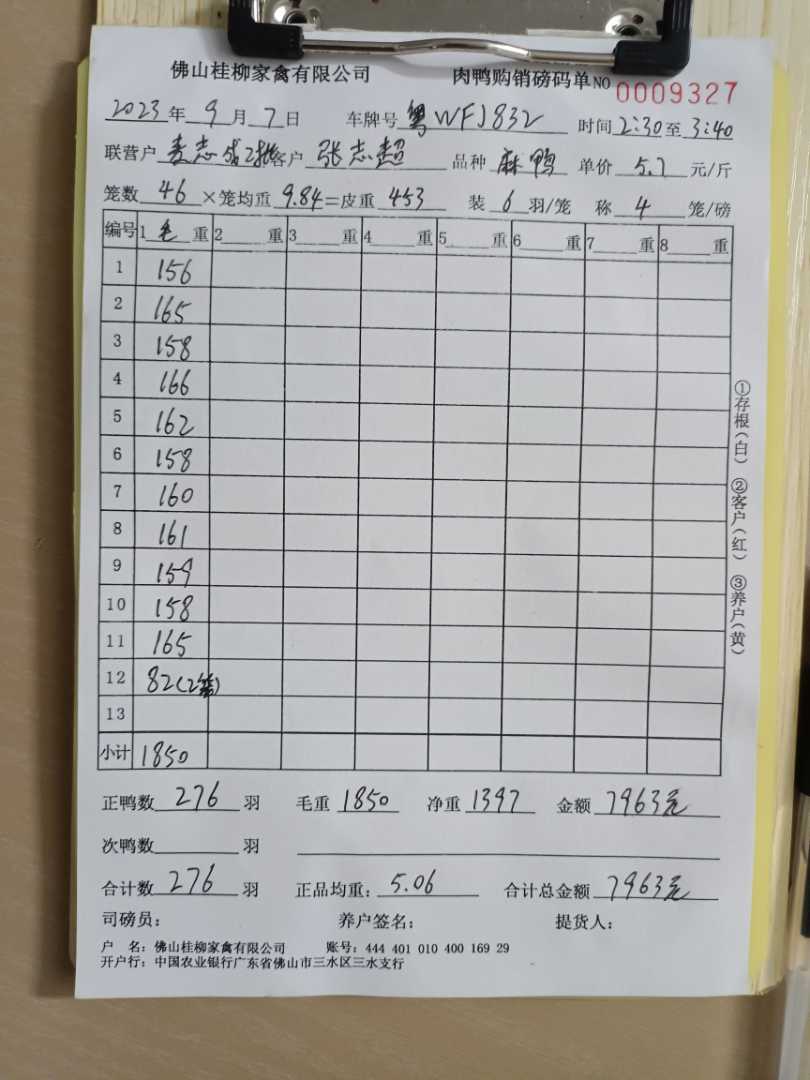 佛山桂柳家禽有限公司 肉鸭购销磅码单 NO 0009327
2023年9月7日 车牌号 粤WFJ832 时间 2:30 至 3:40
联营户 麦志成2批 客户 张志超 品种 麻鸭 单价 5.7 元/斤
笼数 46 ×笼均重 9.84 =皮重 453 装 6 羽/笼 称 4 笼/磅
编号 1 毛 重 2 重 3 重 4 重 5 重 6 重 7 重 8 重
1 156
2 165
3 158
4 166
5 162
6 158
7 160
8 161
9 159
10 158
11 165
12 82(2笼)
13
小计 1850
正鸭数 276 羽 毛重 1850 净重 1397 金额 7963元
次鸭数 羽
合计数 276 羽 正品均重: 5.06 合计总金额 7963元
司磅员: 养户签名: 提货人:
户 名: 佛山桂柳家禽有限公司 账号: 444 401 010 400 169 29
开户行: 中国农业银行广东省佛山市三水区三水支行
①存根(白) ②客户(红) ③养户(黄)